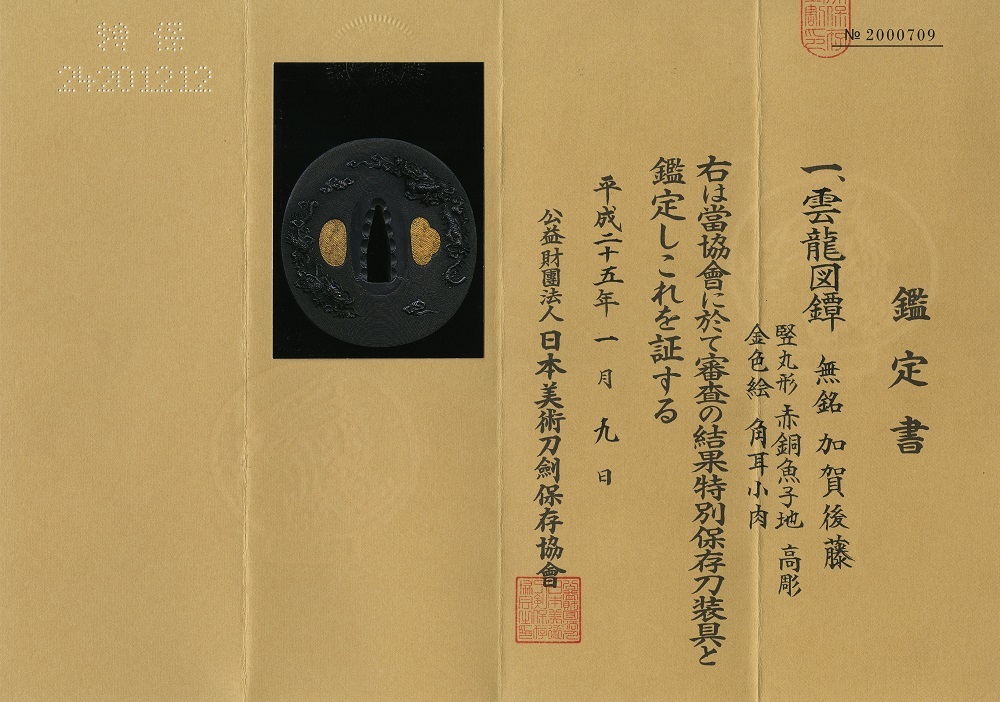 № 2000709
鑑定書
一、雲龍図鐔 無銘 加賀後藤
竪丸形 赤銅魚子地 高彫
金色絵 角耳小肉
右は當協會に於て審査の結果特別保存刀装具と
鑑定しこれを証する
平成二十五年一月九日
公益財團法人日本美術刀劍保存協會
特保
24201212